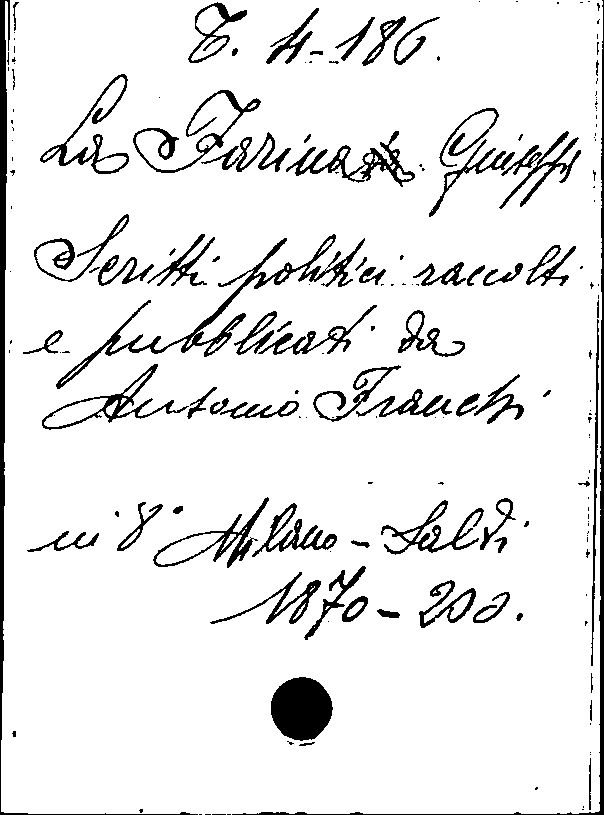 T. 4-186.
La Farina Giuseppe
Scritti politici raccolti
e pubblicati da
Antonio Franchi
in 8° Milano - Salvi
1870 - 200.